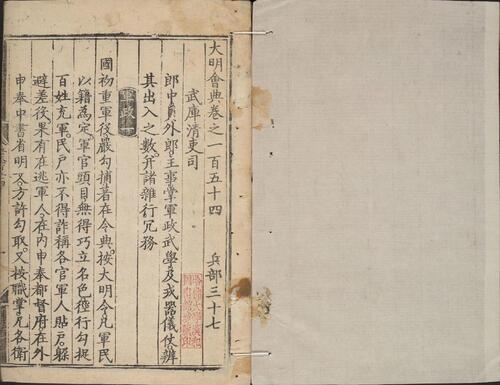 大明會典卷之一百五十四
兵部三十七
武庫清吏司
郎中員外郎主事掌軍政武學及戎器儀仗辨
其出入之數并諸雜行冗務
軍政一
國初重軍役嚴勾捕著在令典按大明令凡軍民
以籍為定軍官頭目無得巧立名色徑行勾捉
百姓充軍民戶亦不得詐稱各官軍人貼戶躲
避差役果有在逃軍人在內申奉都督府在外
申奉中書省明文方許勾取又按職掌凡各衛